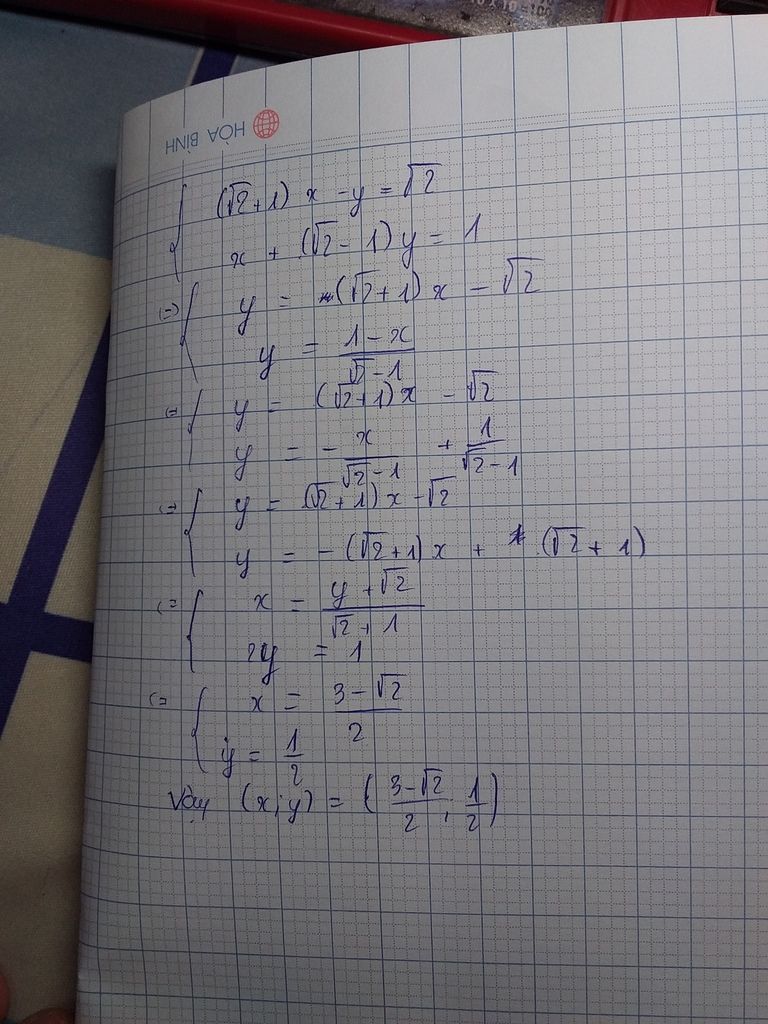 HÒA BÌNH
(√2+1) x - y = √2
x + (√2 - 1) y = 1
(=) y = (√2+1) x - √2
y = (1-x)/(√2-1)
(= y = (√2+1) x - √2
y = - x/(√2-1) + 1/(√2-1)
(= y = (√2+1) x - √2
y = -(√2+1) x + (√2+1)
(= x = (y+√2)/(√2+1)
2y = 1
(= x = (3-√2)/2
y = 1/2
Vậy (x;y) = ((3-√2)/2, 1/2)